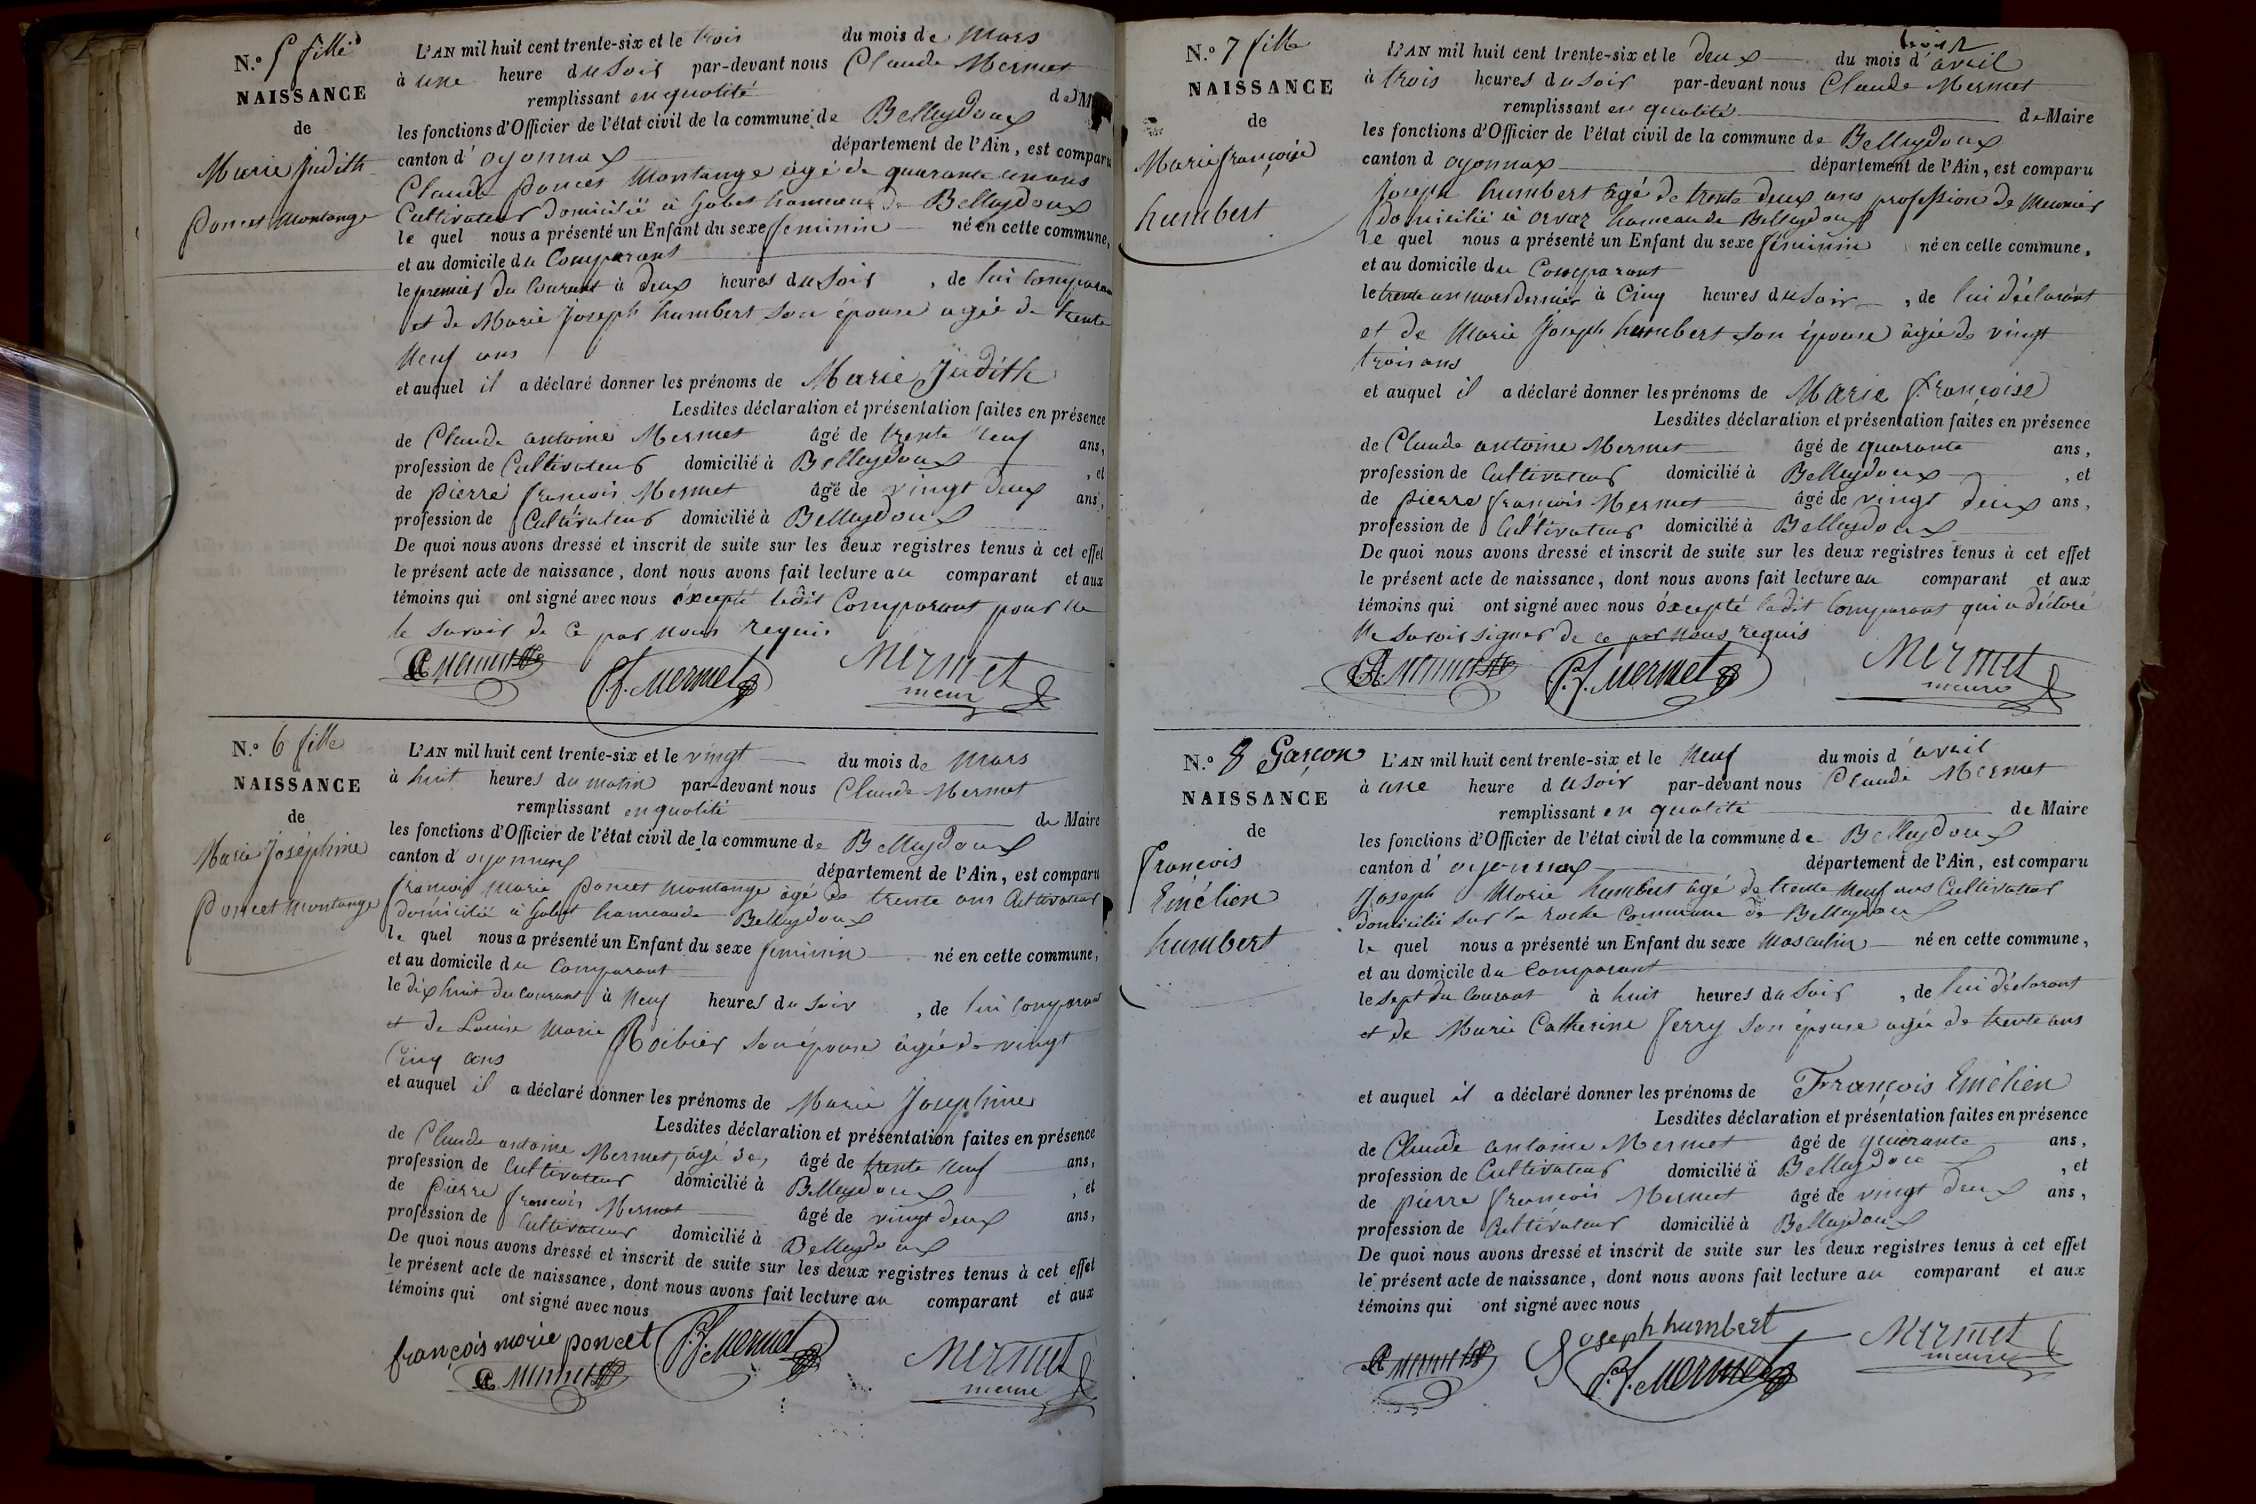 N.o 5 fille
NAISSANCE
de
Marie Judith
Poncet Montange
L'AN mil huit cent trente-six et le trois du mois de Mars
à une heure du Soir par-devant nous Claude Mermet
remplissant en qualité de M
les fonctions d'Officier de l'état civil de la commune de Belleydoux
canton d'oyonnax département de l'Ain, est comparu
Claude Poncet Montange âgé de quarante un ans
Cultivateur domicilié à Gobet hameau de Belleydoux
le quel nous a présenté un Enfant du sexe feminin né en cette commune,
et au domicile du Comparant
le premier du Courant à deux heures du Soir, de lui comparant
et de Marie Joseph humbert son épouse agée de trente
Neuf ans
et auquel il a déclaré donner les prénoms de Marie Judith
Lesdites déclaration et présentation faites en présence
de Claude antoine Mermet âgé de trente Neuf ans,
profession de Cultivateur domicilié à Belleydoux, et
de pierre françois Mermet âgé de vingt deux ans,
profession de Cultivateur domicilié à Belleydoux
De quoi nous avons dressé et inscrit de suite sur les deux registres tenus à cet effet
le présent acte de naissance, dont nous avons fait lecture au comparant et aux
témoins qui ont signé avec nous éxcepté ledit Comparant pour ne
le savoir de ce par nous requis
CA Mermet P.f. Mermet Mermet
maire
N.o 6 fille
NAISSANCE
de
Marie Joséphine
Poncet Montange
L'AN mil huit cent trente-six et le vingt du mois de Mars
à huit heures du matin par-devant nous Claude Mermet
remplissant en qualité de Maire
les fonctions d'Officier de l'état civil de la commune de Belleydoux
canton d'oyonnax département de l'Ain, est comparu
françois Marie Poncet Montange âgé de trente ans Cultivateur
domicilié à Gobet hameau de Belleydoux
le quel nous a présenté un Enfant du sexe feminin né en cette commune,
et au domicile du Comparant
le dix huit du courant à Neuf heures du soir, de lui comparant
et de Louise Marie Roibier son épouse âgée de vingt
Cinq ans
et auquel il a déclaré donner les prénoms de Marie Josephine
Lesdites déclaration et présentation faites en présence
de Claude antoine Mermet, âgé de, âgé de trente Neuf ans,
profession de Cultivateur domicilié à Belleydoux, et
de pierre françois Mermet âgé de vingt deux ans,
profession de Cultivateur domicilié à Belleydoux
De quoi nous avons dressé et inscrit de suite sur les deux registres tenus à cet effet
le présent acte de naissance, dont nous avons fait lecture au comparant et aux
témoins qui ont signé avec nous
françois marie poncet P.f. Mermet Mermet
CA Mermet maire
N.o 7 fille
NAISSANCE
de
Marie françoise
humbert
L'AN mil huit cent trente-six et le deux du mois d'avril
à trois heures du soir par-devant nous Claude Mermet
remplissant en qualité de Maire
les fonctions d'Officier de l'état civil de la commune de Belleydoux
canton d oyonnax département de l'Ain, est comparu
Joseph humbert âgé de trente deux ans profession de Meunier
domicilié à orvaz hameau de Belleydoux
le quel nous a présenté un Enfant du sexe féminin né en cette commune,
et au domicile du Comparant
le trente un mars dernier à Cinq heures du soir, de lui déclarant
et de Marie Joseph humbert son épouse âgée de vingt
trois ans
et auquel il a déclaré donner les prénoms de Marie françoise
Lesdites déclaration et présentation faites en présence
de Claude antoine Mermet âgé de quarante ans,
profession de Cultivateur domicilié à Belleydoux, et
de pierre françois Mermet âgé de vingt deux ans,
profession de Cultivateur domicilié à Belleydoux
De quoi nous avons dressé et inscrit de suite sur les deux registres tenus à cet effet
le présent acte de naissance, dont nous avons fait lecture au comparant et aux
témoins qui ont signé avec nous éxcepté ledit Comparant qui a déclaré
Ne savoir signer de ce par nous requis
CA Mermet P.f. Mermet Mermet
maire
N.o 8 Garçon
NAISSANCE
de
françois
Emélien
humbert
L'AN mil huit cent trente-six et le Neuf du mois d'avril
à une heure du soir par-devant nous Claude Mermet
remplissant en qualité de Maire
les fonctions d'Officier de l'état civil de la commune de Belleydoux
canton d'oyonnax département de l'Ain, est comparu
Joseph Marie humbert âgé de trente Neuf ans Cultivateur
domicilié sur la roche Commune de Belleydoux
le quel nous a présenté un Enfant du sexe Masculin né en cette commune,
et au domicile du Comparant
le sept du Courant à huit heures du Soir, de lui déclarant
et de Marie Catherine Ferry son épouse agée de trente ans
et auquel il a déclaré donner les prénoms de François Emélien
Lesdites déclaration et présentation faites en présence
de Claude antoine Mermet âgé de quarante ans,
profession de Cultivateur domicilié à Belleydoux, et
de pierre françois Mermet âgé de vingt deux ans,
profession de Cultivateur domicilié à Belleydoux
De quoi nous avons dressé et inscrit de suite sur les deux registres tenus à cet effet
le présent acte de naissance, dont nous avons fait lecture au comparant et aux
témoins qui ont signé avec nous
Joseph humbert
CA Mermet P.f. Mermet Mermet
maire